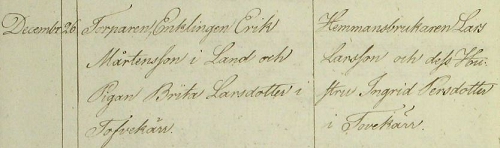 Decembr. 26. Torparen, Enklingen Erik
Mårtensson i Land och
Pigan Brita Larsdotter i
Tofvekärr.
Hemmansbrukaren Lars
Larsson och dess Hu-
stru Ingrid Persdotter
i Tovekärr.